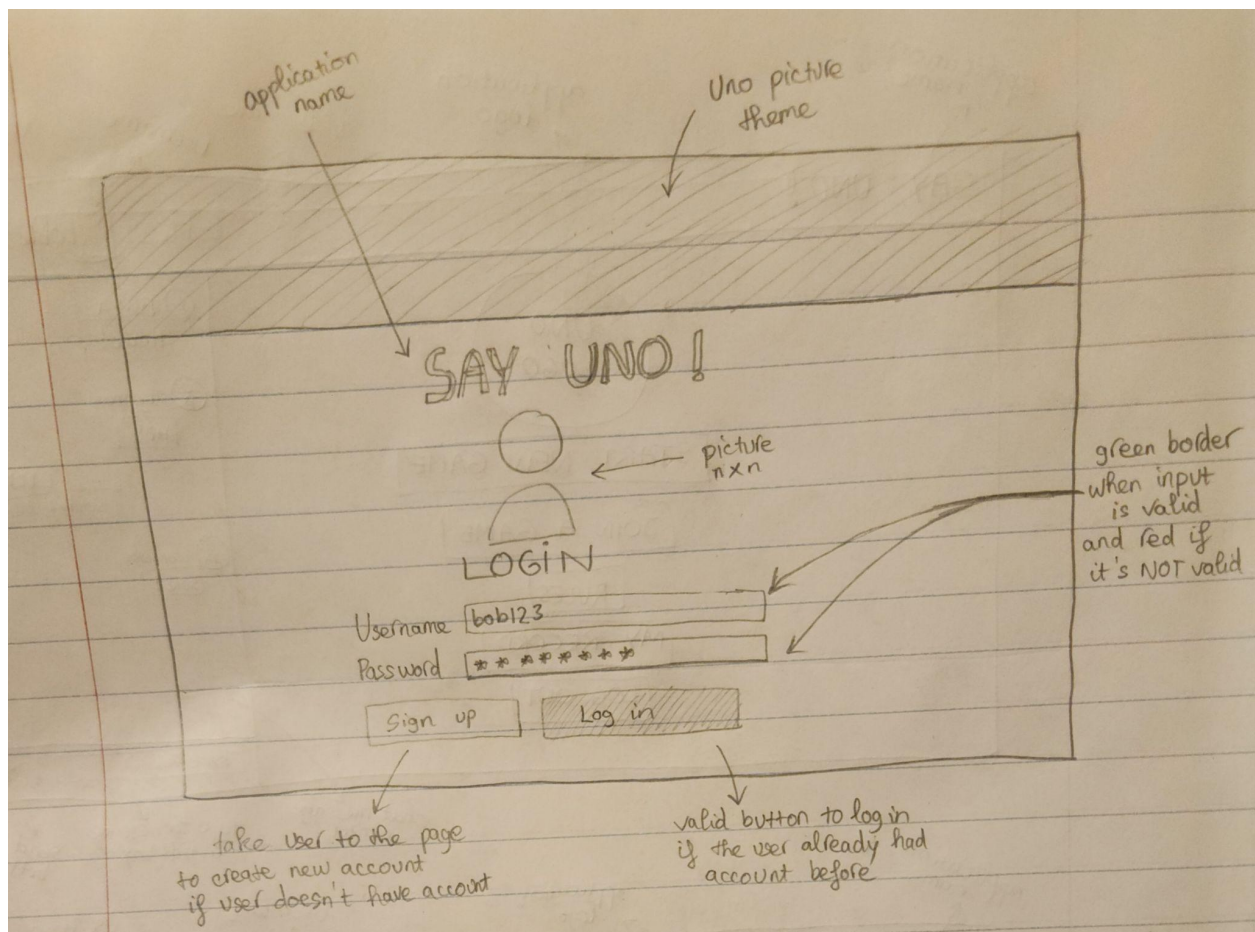 application
name
Uno picture
theme
SAY UNO!
picture
n x n
green border
when input
is valid
and red if
it's NOT valid
LOGIN
Username bob123
Password ********
Sign up
Log in
take user to the page
to create new account
if user doesn't have account
valid button to log in
if the user already had
account before